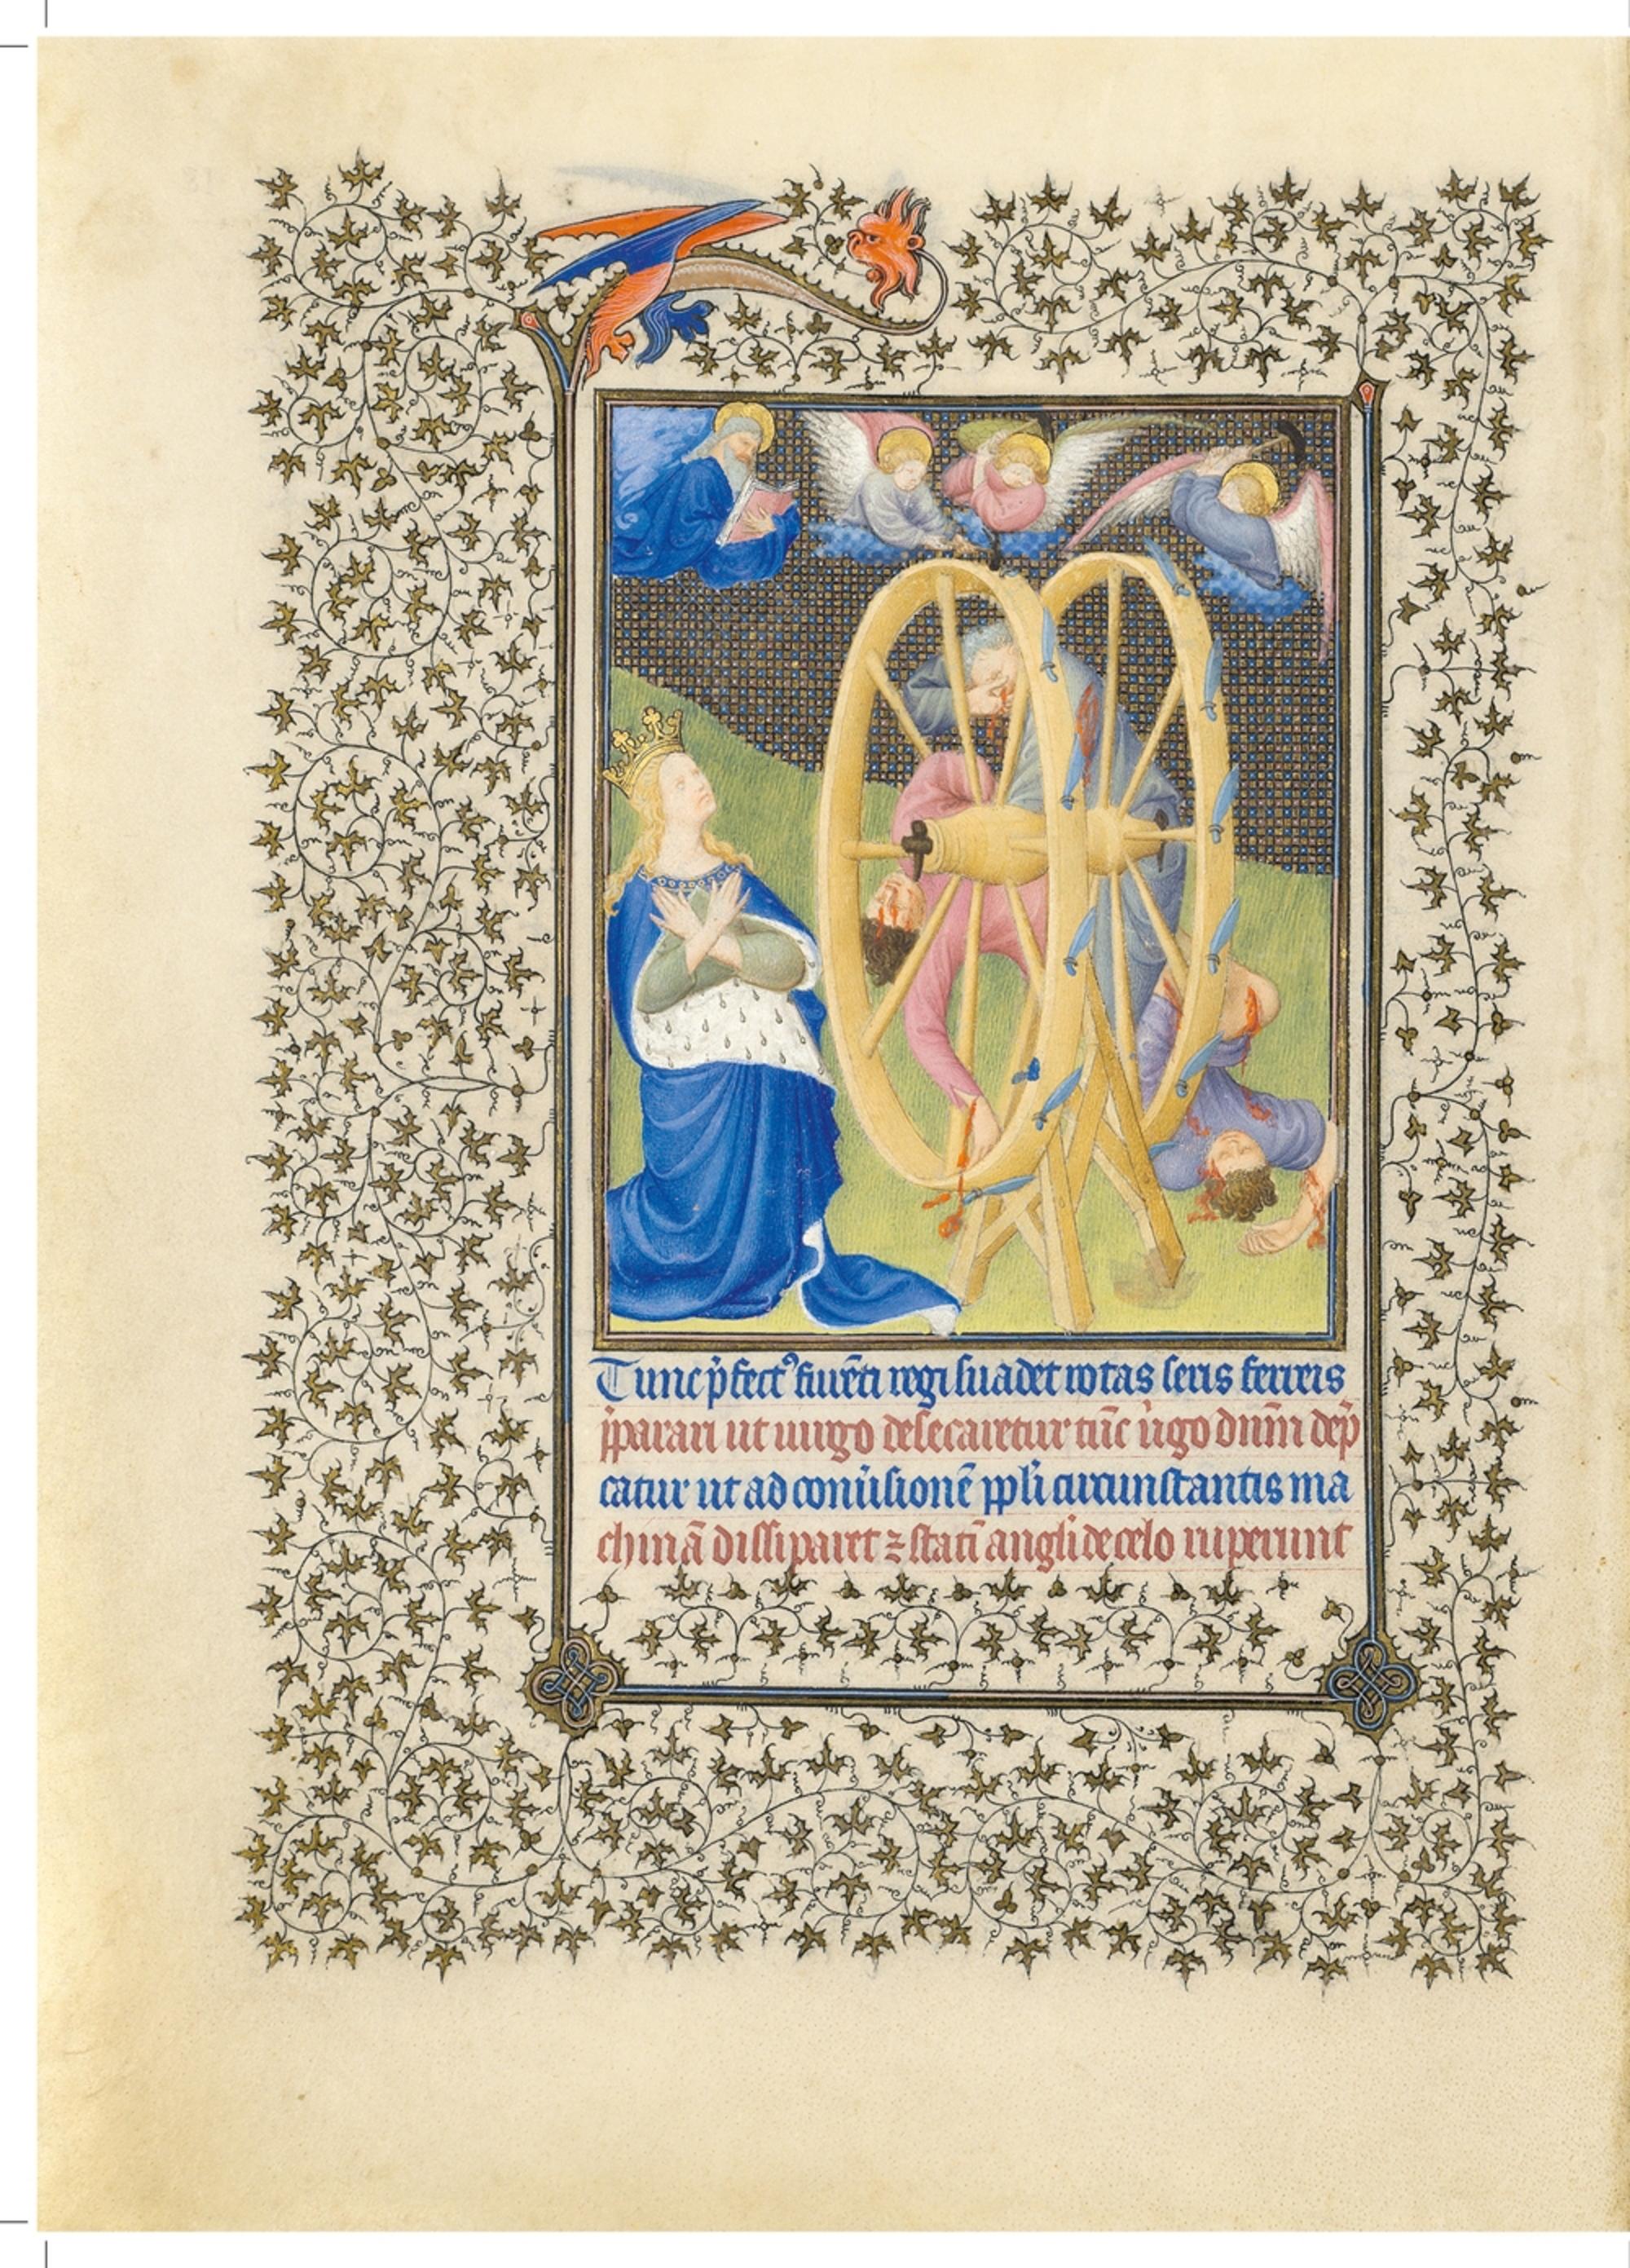 Tunc p̄fect᷒ furēti regi suadet rotas seris ferreis
p̄parari ut uirgo desecaretur tūc ůgo dnm̄ dep̄
catur ut ad conůsionē ppli circunstantis ma
chinā dissiparet ⁊ statī angli de celo ruperunt